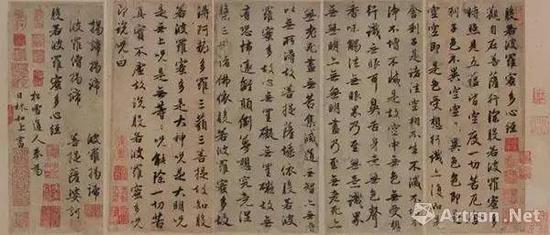 般若波羅蜜多心經
觀自在菩薩行深般若波羅蜜多
時照見五蘊皆空度一切苦厄舍
利子色不異空空不異色色即是
空空即是色受想行識亦復如是
舍利子是諸法空相不生不滅不垢不
淨不增不減是故空中無色無受想
行識無眼耳鼻舌身意無色聲
香味觸法無眼界乃至無意識界
無無明亦無無明盡乃至無老死亦
無老死盡無苦集滅道無智亦無得
以無所得故菩提薩埵依般若波
羅蜜多故心無罣礙無罣礙故無
有恐怖遠離顛倒夢想究竟涅
槃三世諸佛依般若波羅蜜多故
得阿耨多羅三藐三菩提故知般
若波羅蜜多是大神咒是大明咒
是無上咒是無等等咒能除一切苦
真實不虛故說般若波羅蜜多咒
即說咒曰
揭諦揭諦 波羅揭諦
波羅僧揭諦 菩提薩婆訶
般若波羅蜜多心經
松雪道人奉為
日林和上書
Artron.Net
雅昌艺术网